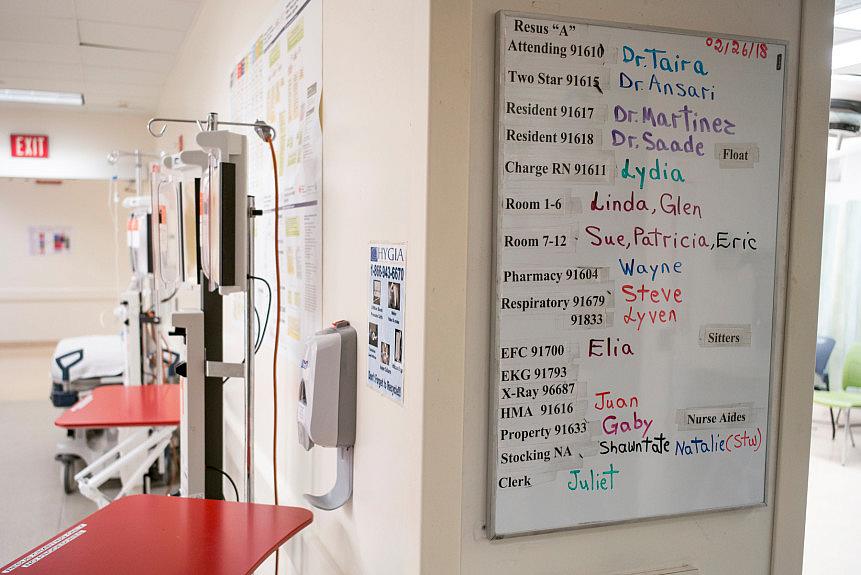 EXIT
HYGIA
1-866-943-6670
Don't Forget to Recycle!!
02/26/18
Resus "A"
Attending 91610 Dr. Taira
Two Star 91615 Dr. Ansari
Resident 91617 Dr. Martinez
Resident 91618 Dr. Saade
Float
Charge RN 91611 Lydia
Room 1-6 Linda, Glen
Room 7-12 Sue, Patricia, Eric
Pharmacy 91604 Wayne
Respiratory 91679 Steve
91833 Lyven
Sitters
EFC 91700 Elia
EKG 91793
X-Ray 96687
HMA 91616 Juan
Nurse Aides
Property 91633 Gaby
Stocking NA Shawntate Natalie (Stu)
Clerk Juliet